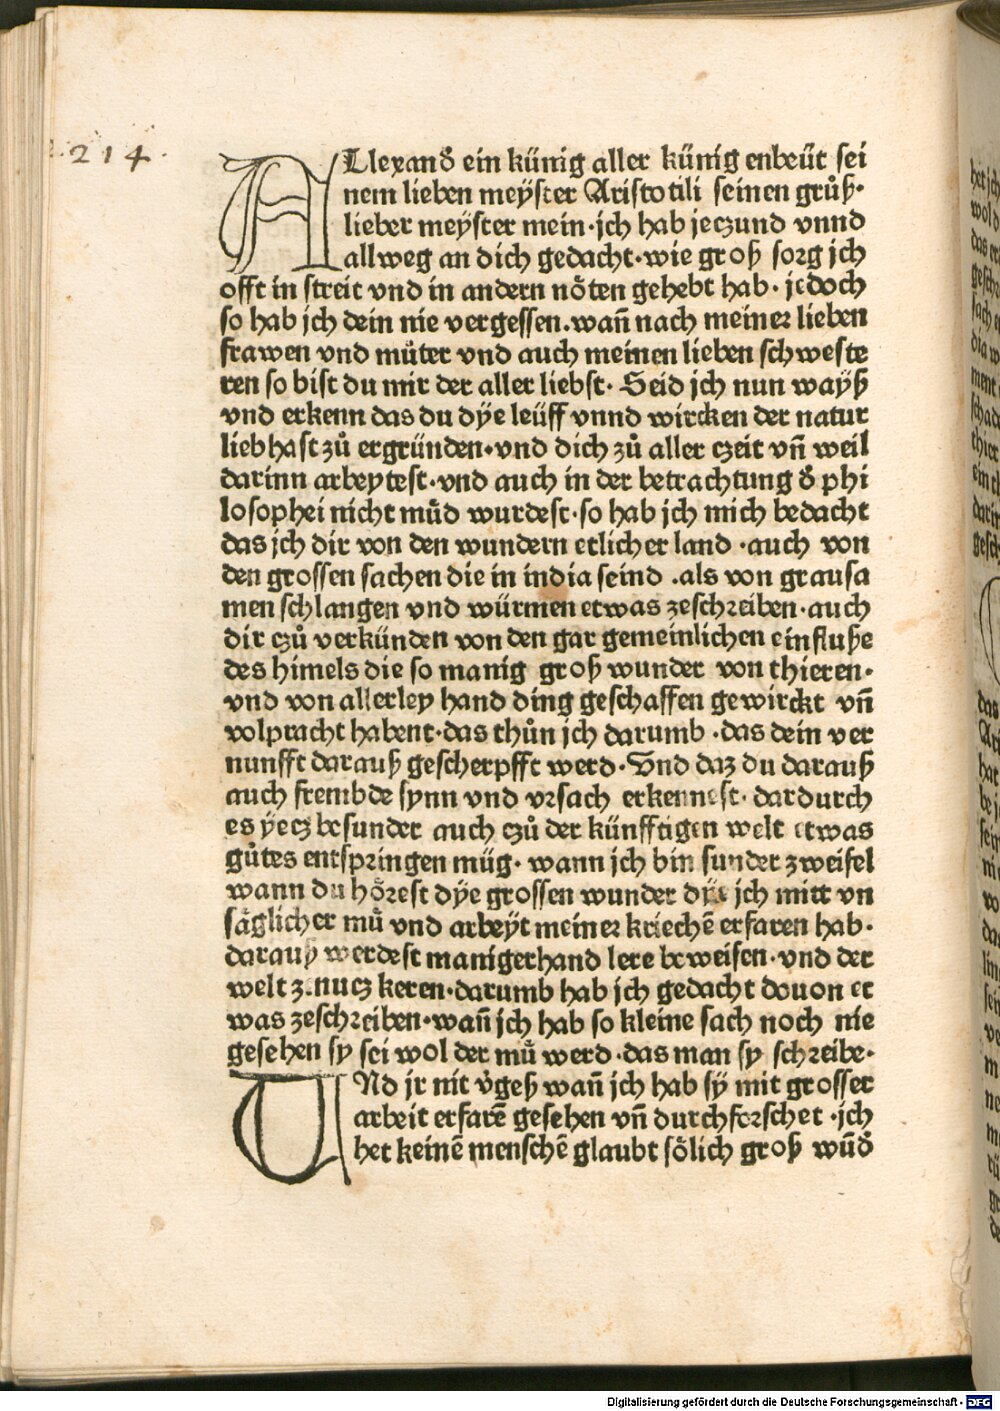 .214.
ALlexandẽ ein künig aller künig enbeüt sei
nem lieben meÿster Aristotili seinen grůß·
lieber meÿster mein·ich hab jeczund vnnd
allweg an dich gedacht·wie groß sorg jch
offt in streit vnd in andern nöten gehebt hab· jedoch
so hab jch dein nie vergessen.wañ nach meiner lieben
frawen vnd můter vnd auch meinen lieben schweste
ren so bist du mir der aller liebst· Seid jch nun wayß
vnd erkenn das du dÿe leüff vnnd wircken der natur
liebhast zů ergründen·vnd dich zů aller czeit vñ weil
darinn arbeytest·vnd auch in der betrachtung d̕ phi
losophei nicht můd wurdest·so hab jch mich bedacht
das jch dir von den wundern etlicher land ·auch von
den grossen sachen die in india seind .als von grausa
men schlangen vnd würmen etwas zeschreiben·auch
dir czů verkünden von den gar gemeinlichen einfluße
des himels die so manig groß wunder von thieren·
vnd von allerley hand ding geschaffen gewirckt vñ
volpracht habent·das thůn jch darumb ·das dein ver
nunfft darauß gescherpfft werd·Vnd daz du darauß
auch frembde synn vnd vrsach erkennest· dardurch
es ÿecz besunder auch czů der künfftigen welt etwas
gůtes entspringen müg· wann jch bin sunder zweifel
wann du hörest dÿe grossen wunder dÿe jch mitt vn
säglicher mů vnd arbeÿt meiner kriechē erfaren hab·
darauß werdest manigerhand lere beweisen·vnd der
welt z.nucz keren·darumb hab jch gedacht douon et
was zeschreiben·wañ jch hab so kleine sach noch nie
gesehen sy sei wol der mů werd·das man sy schreibe·
VNd jr nit v̕geß wañ jch hab sÿ mit grosser
arbeit erfarē gesehen vñ durchforschet ·jch
het keinē menschē glaubt sölich groß wūd̕
Digitalisierung gefördert durch die Deutsche Forschungsgemeinschaft - DFG